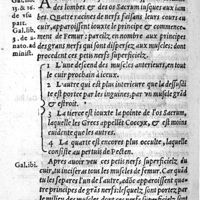 Gal. lib.
13. & 16.
de vsu
part.
Gal. lib.
3. de a-
nato. ad
ministr.
des lombes & des os Sacrum iusques aux iam
bes. Quatre racines de nerfs faisans leurs cours au
cuir, apparoissent ioincte le principe & commence-
ment de Femur : pareilz en nombre aux principes
des grans nerfs qui sont dispersez aux muscles : dont
procedent ces petis nerfs superficielz.
1 L'une descend des muscles anterieurs, en tout
le cuir prochain à iceux.
2 L'autre qui est plus interieure que la dessusdi-
te est portée par les inguines, par vn muscle gresle
& estroit.
3 La tierce est iouxte la pointe de l'os Sacrum,
laquelle les Grecs appellẽt Coccyx, & est moins
euidente que les autres.
4 La quarte est encores plus occulte, laquelle
consiste au pertuis de Pecten.
Gal. ibi.
Apres auoir veu ces petis nerfs superficielz du
cuir, tu incisera tous les muscles de femur. Car quãd
tu les separes l'un de l'autre, adõc apparoissent quatre
principes de grãs nerfs: lesquelz sont portez par